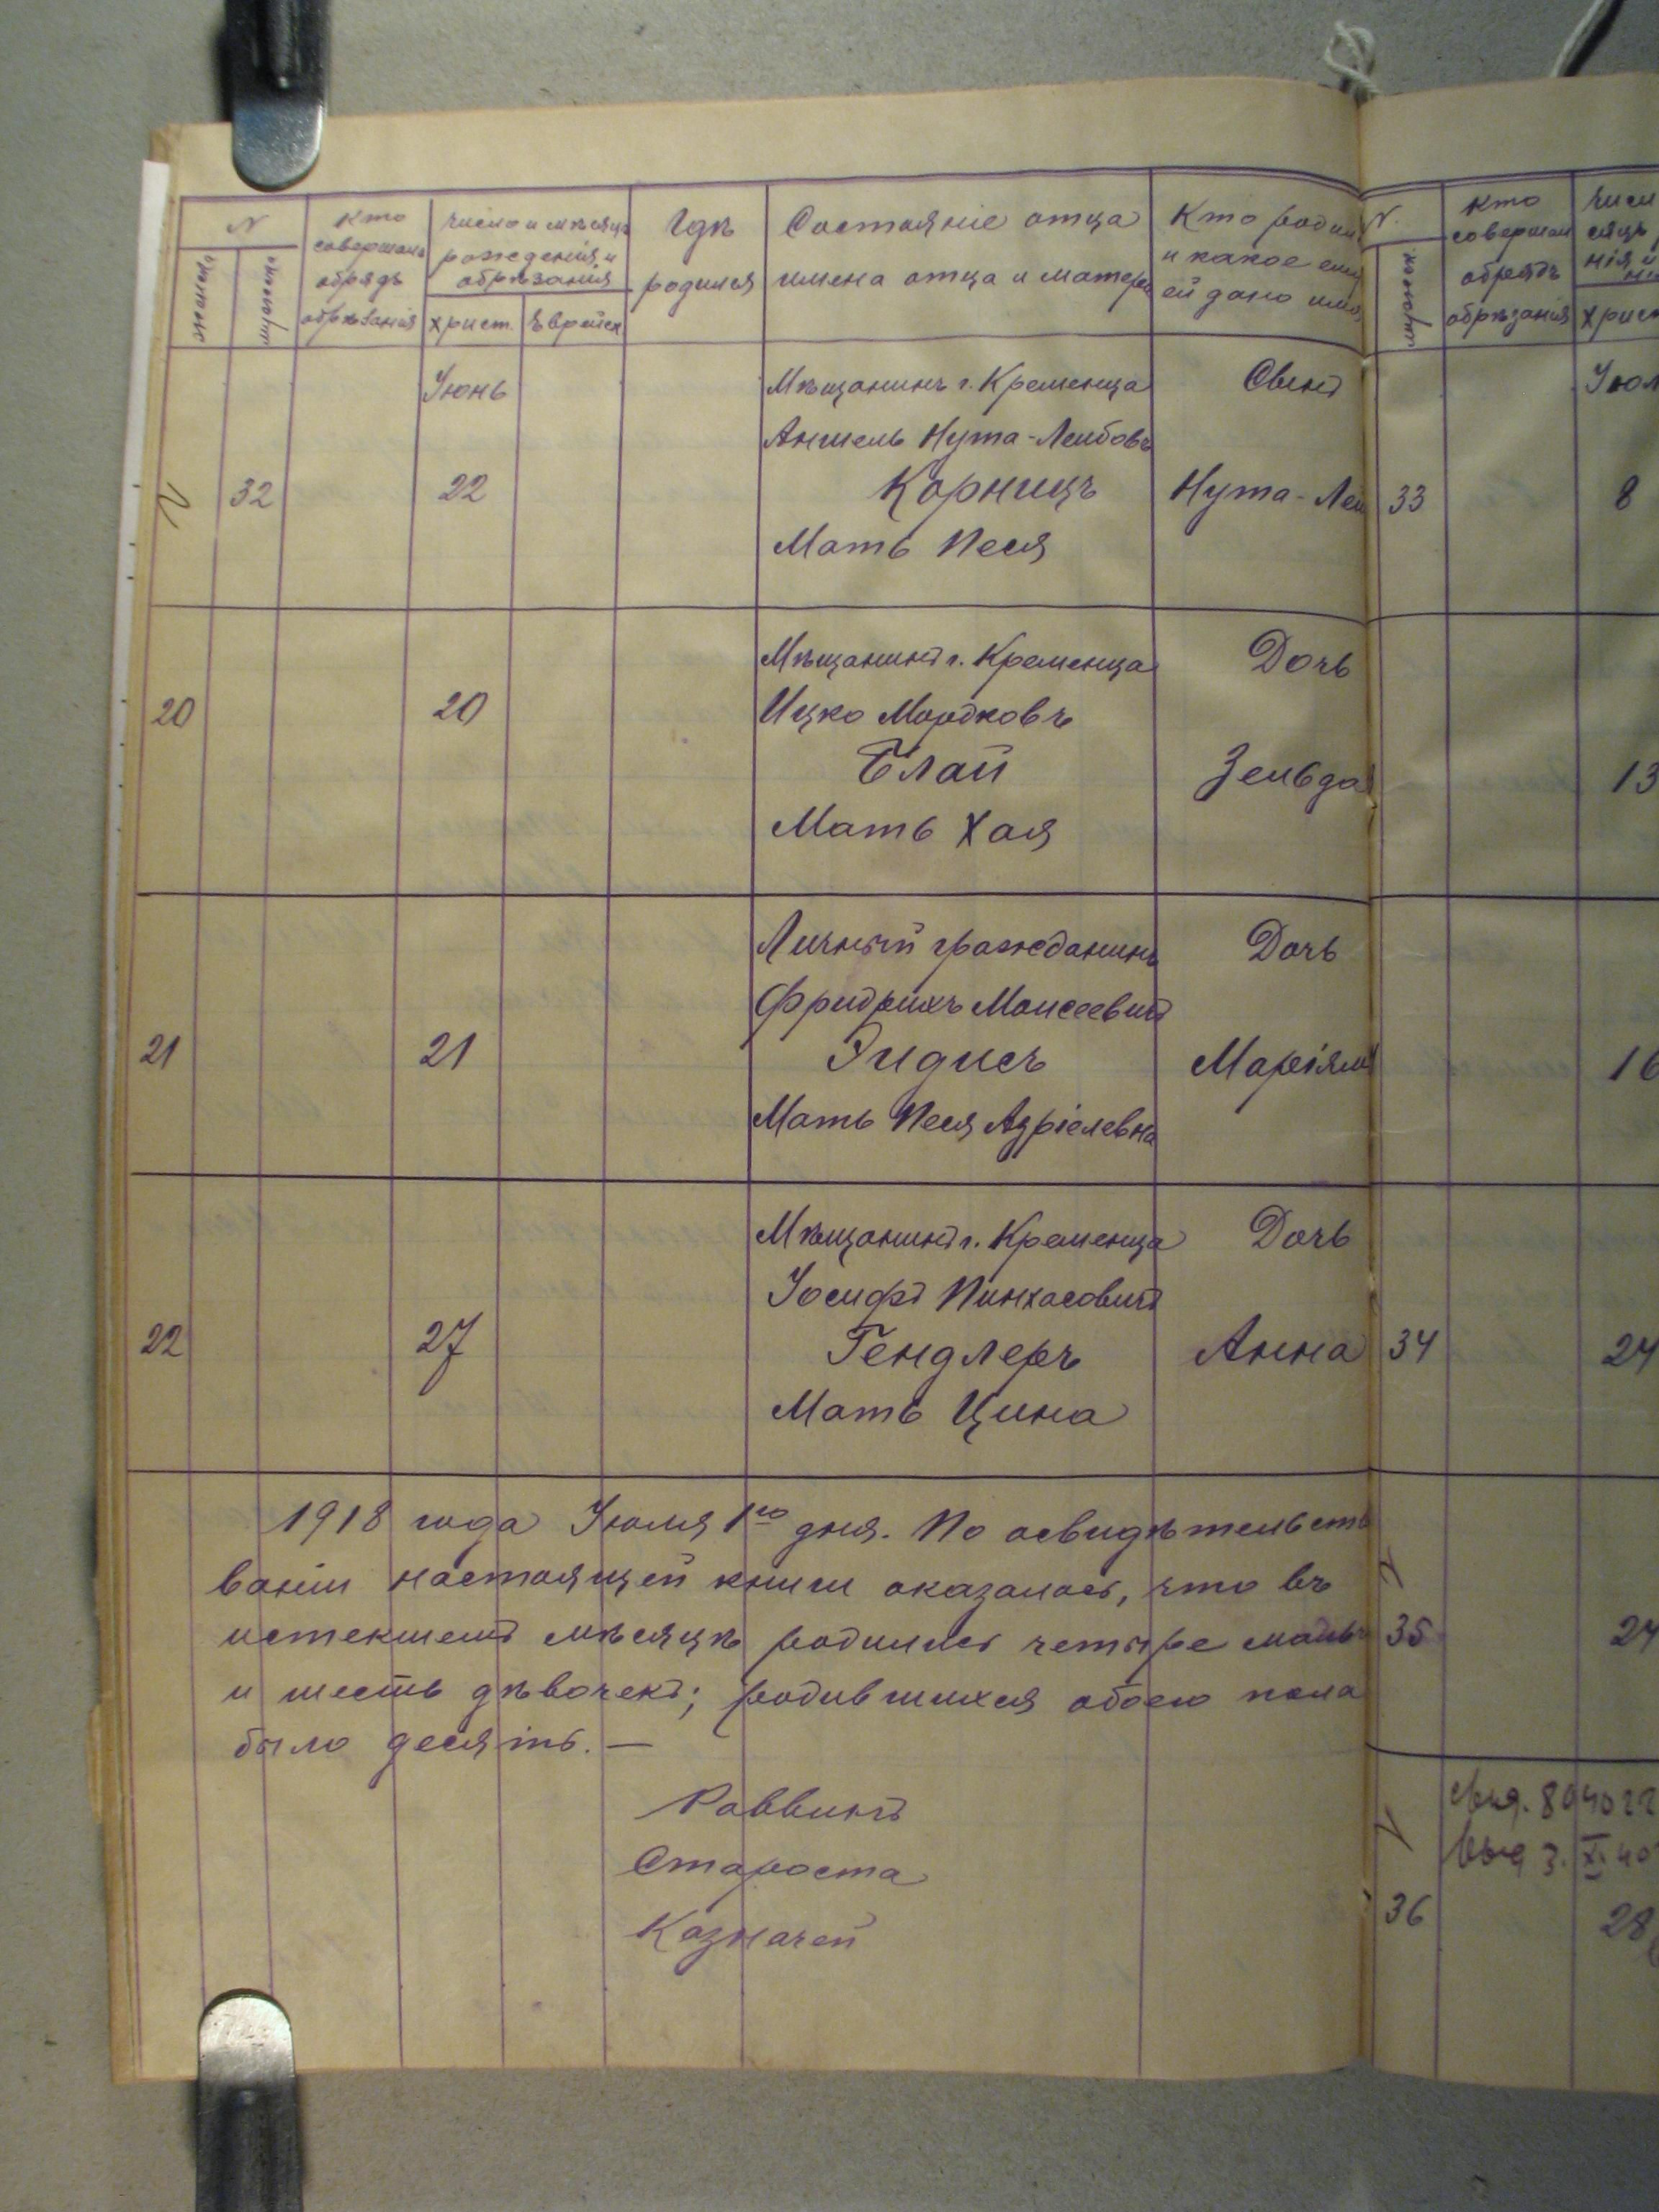 N
женск.
мужеск.
Кто
совершалъ
обрядъ
обрѣзанія
число и мѣсяцъ
рожденія и
обрѣзанія
христ.
Еврейск
Гдѣ
родился
Состояніе отца
имена отца и матери
Кто родил
и какое ему
ей дано имя
Іюнь
Мѣщанинъ г. Кременца
Сынъ
Аншель Нута-Лейбовъ
32
22
Корницъ
Нута-Лей
Мать Песя
Мѣщанинъ г. Кременца
Дочь
20
20
Ицко Мордковъ
Блай
Зельда
Мать Хая
Личный гражданинъ
Дочь
Фридрихъ Моисеевичъ
21
21
Эидисъ
Маріям
Мать Песя Азріелевна
Мѣщанинъ г. Кременца
Дочь
Іосифъ Пинхасовичъ
22
27
Гендлеръ
Анна
Мать Цина
1918 года Іюля 1го дня. По освидѣтельств
ваніи настоящей книги оказалось, что въ
истекшемъ мѣсяцѣ родились четыре мальч
и шесть дѣвочекъ; родившихся обоего пола
было десять. —
Раввинъ
Староста
Казначей
N.
мужеск
кто
совершал
обрядъ
обрѣзанія
числ
сяцъ
нія и
христ
Іюл
33
8
13
16
34
24
35
24
36
28